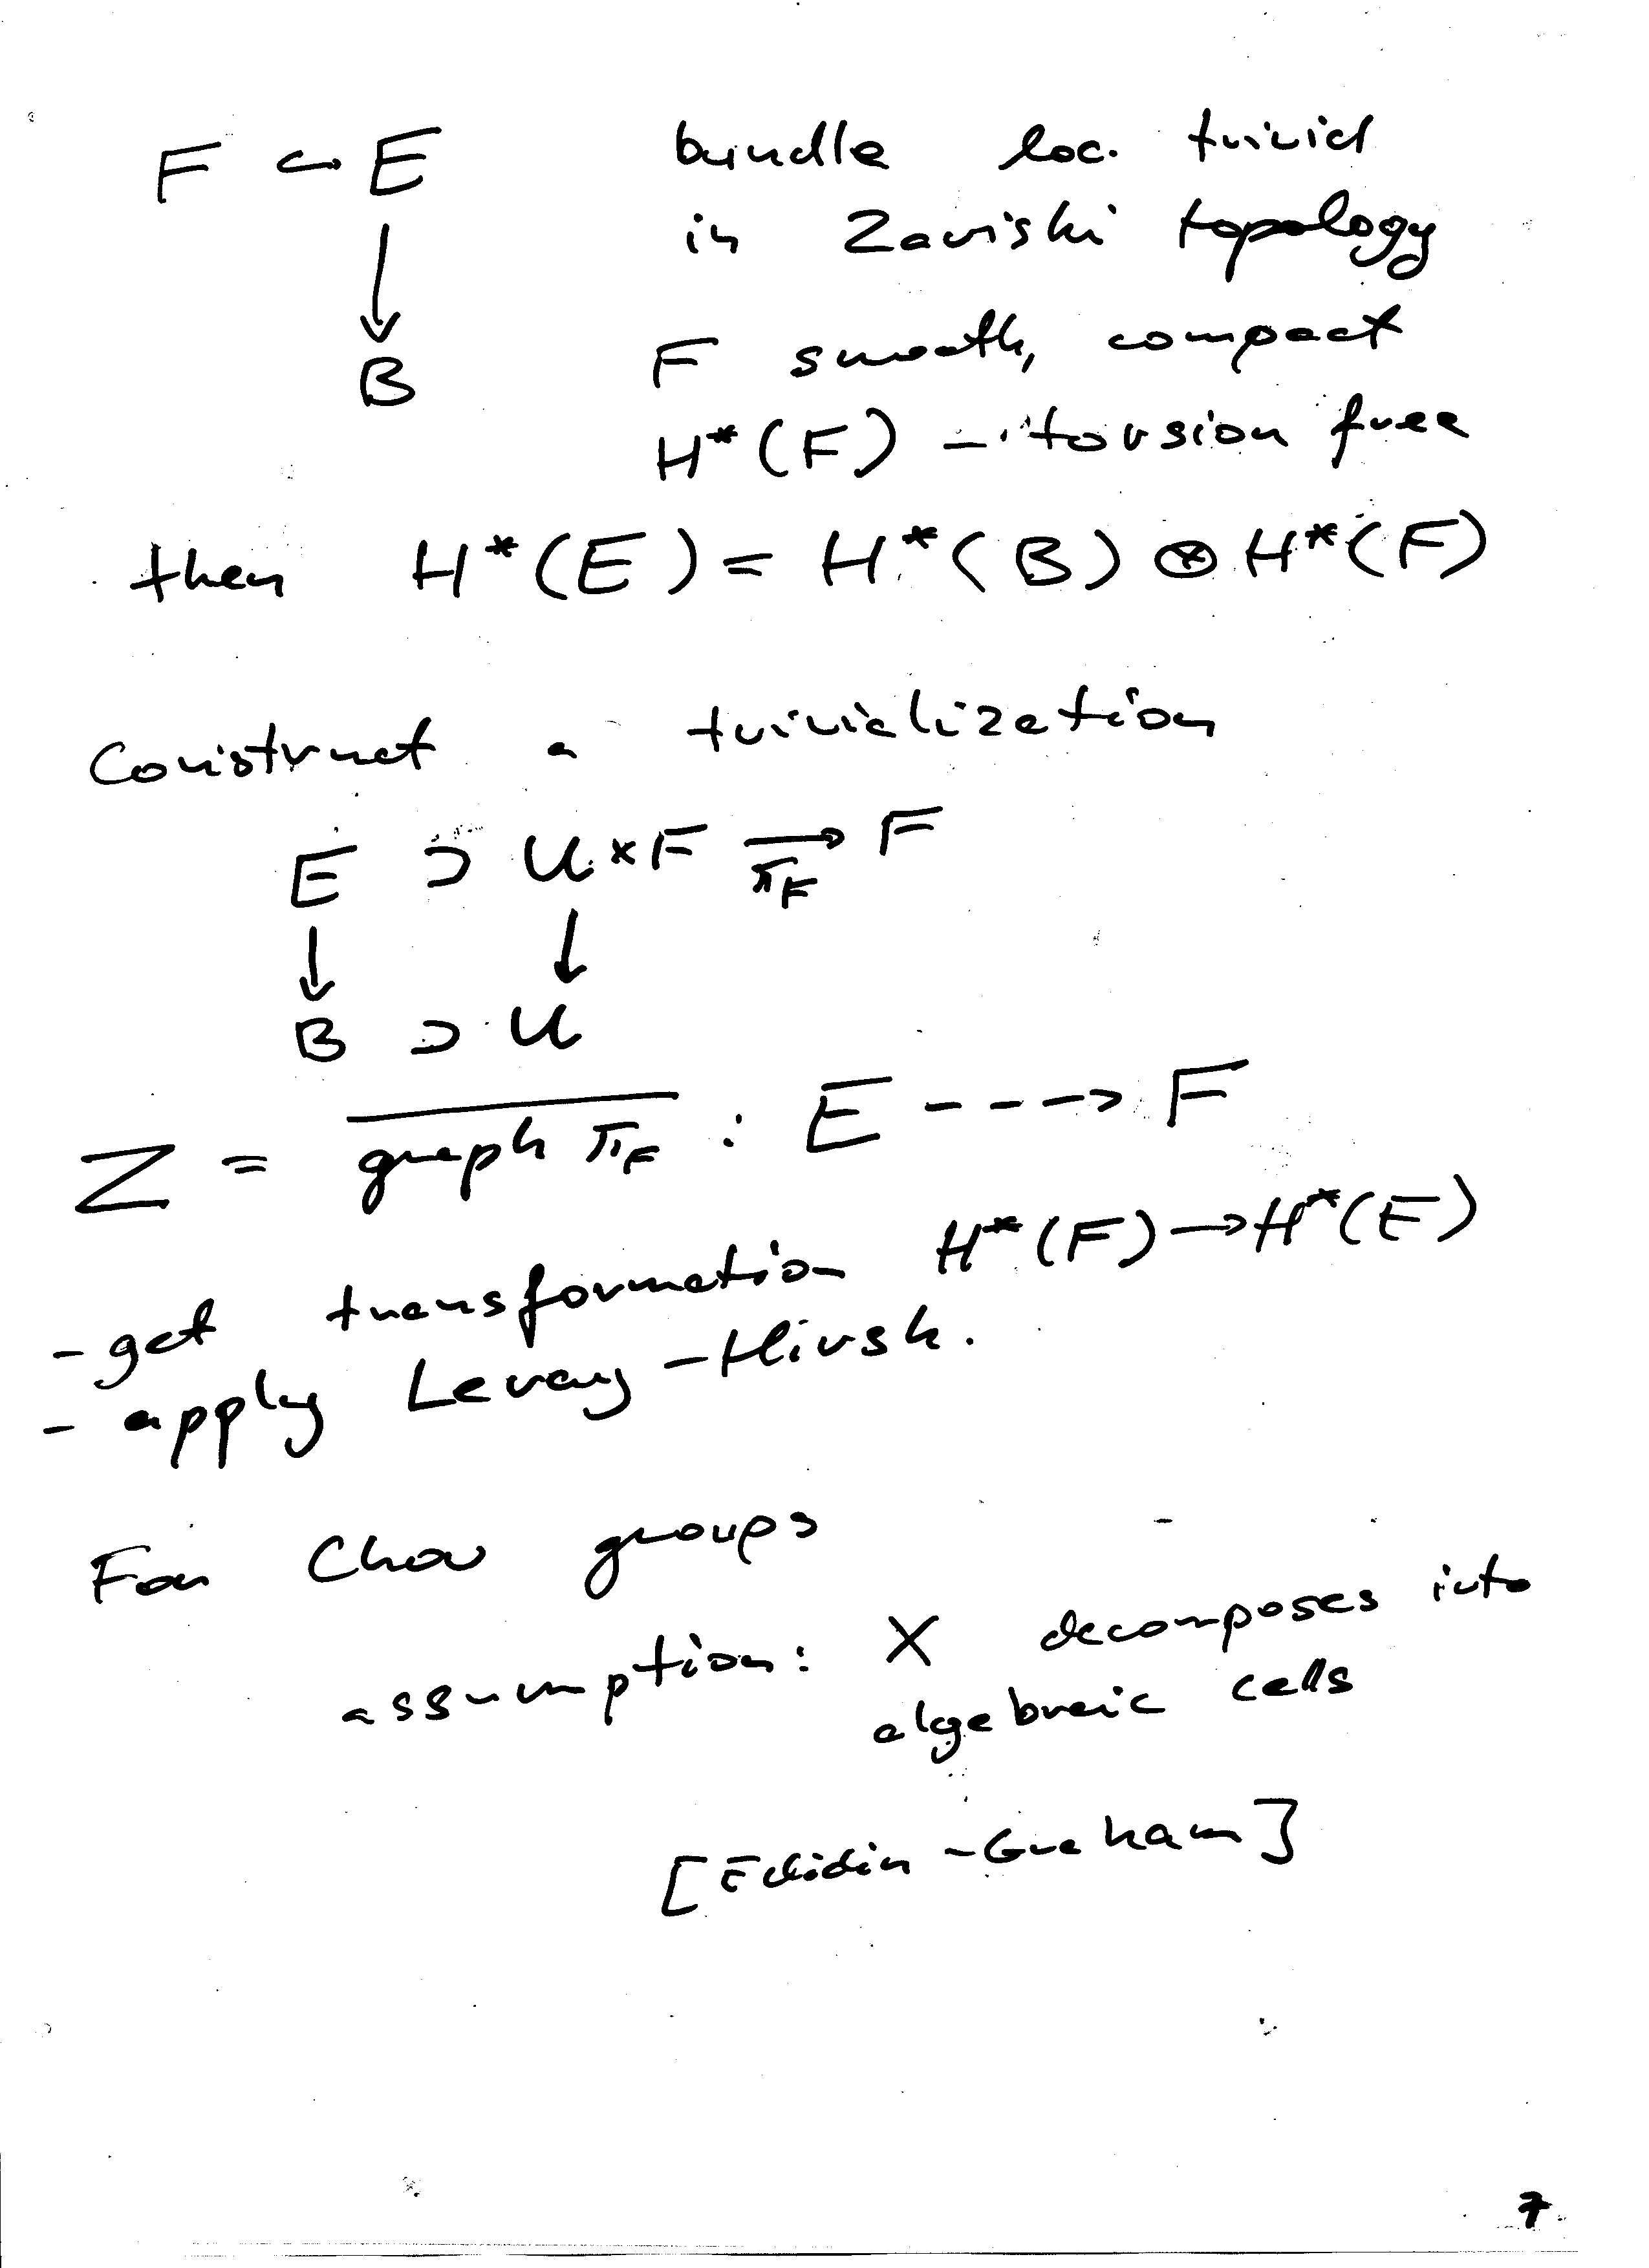 F ↪ E bundle loc. trivial
↓ in Zariski topology
B F smooth, compact
H*(F) – torsion free
then H*(E) = H*(B) ⊗ H*(F)
Construct a trivialization
E ⊃ U × F → F
π_F
↓ ↓
B ⊃ U
Z = \overline{graph π_F} : E ---> F
- get transformation H*(F) → H*(E)
- apply Leray – Hirsh.
For Chow groups
assumption: X decomposes into
algebraic cells
[Edidin – Graham]
7